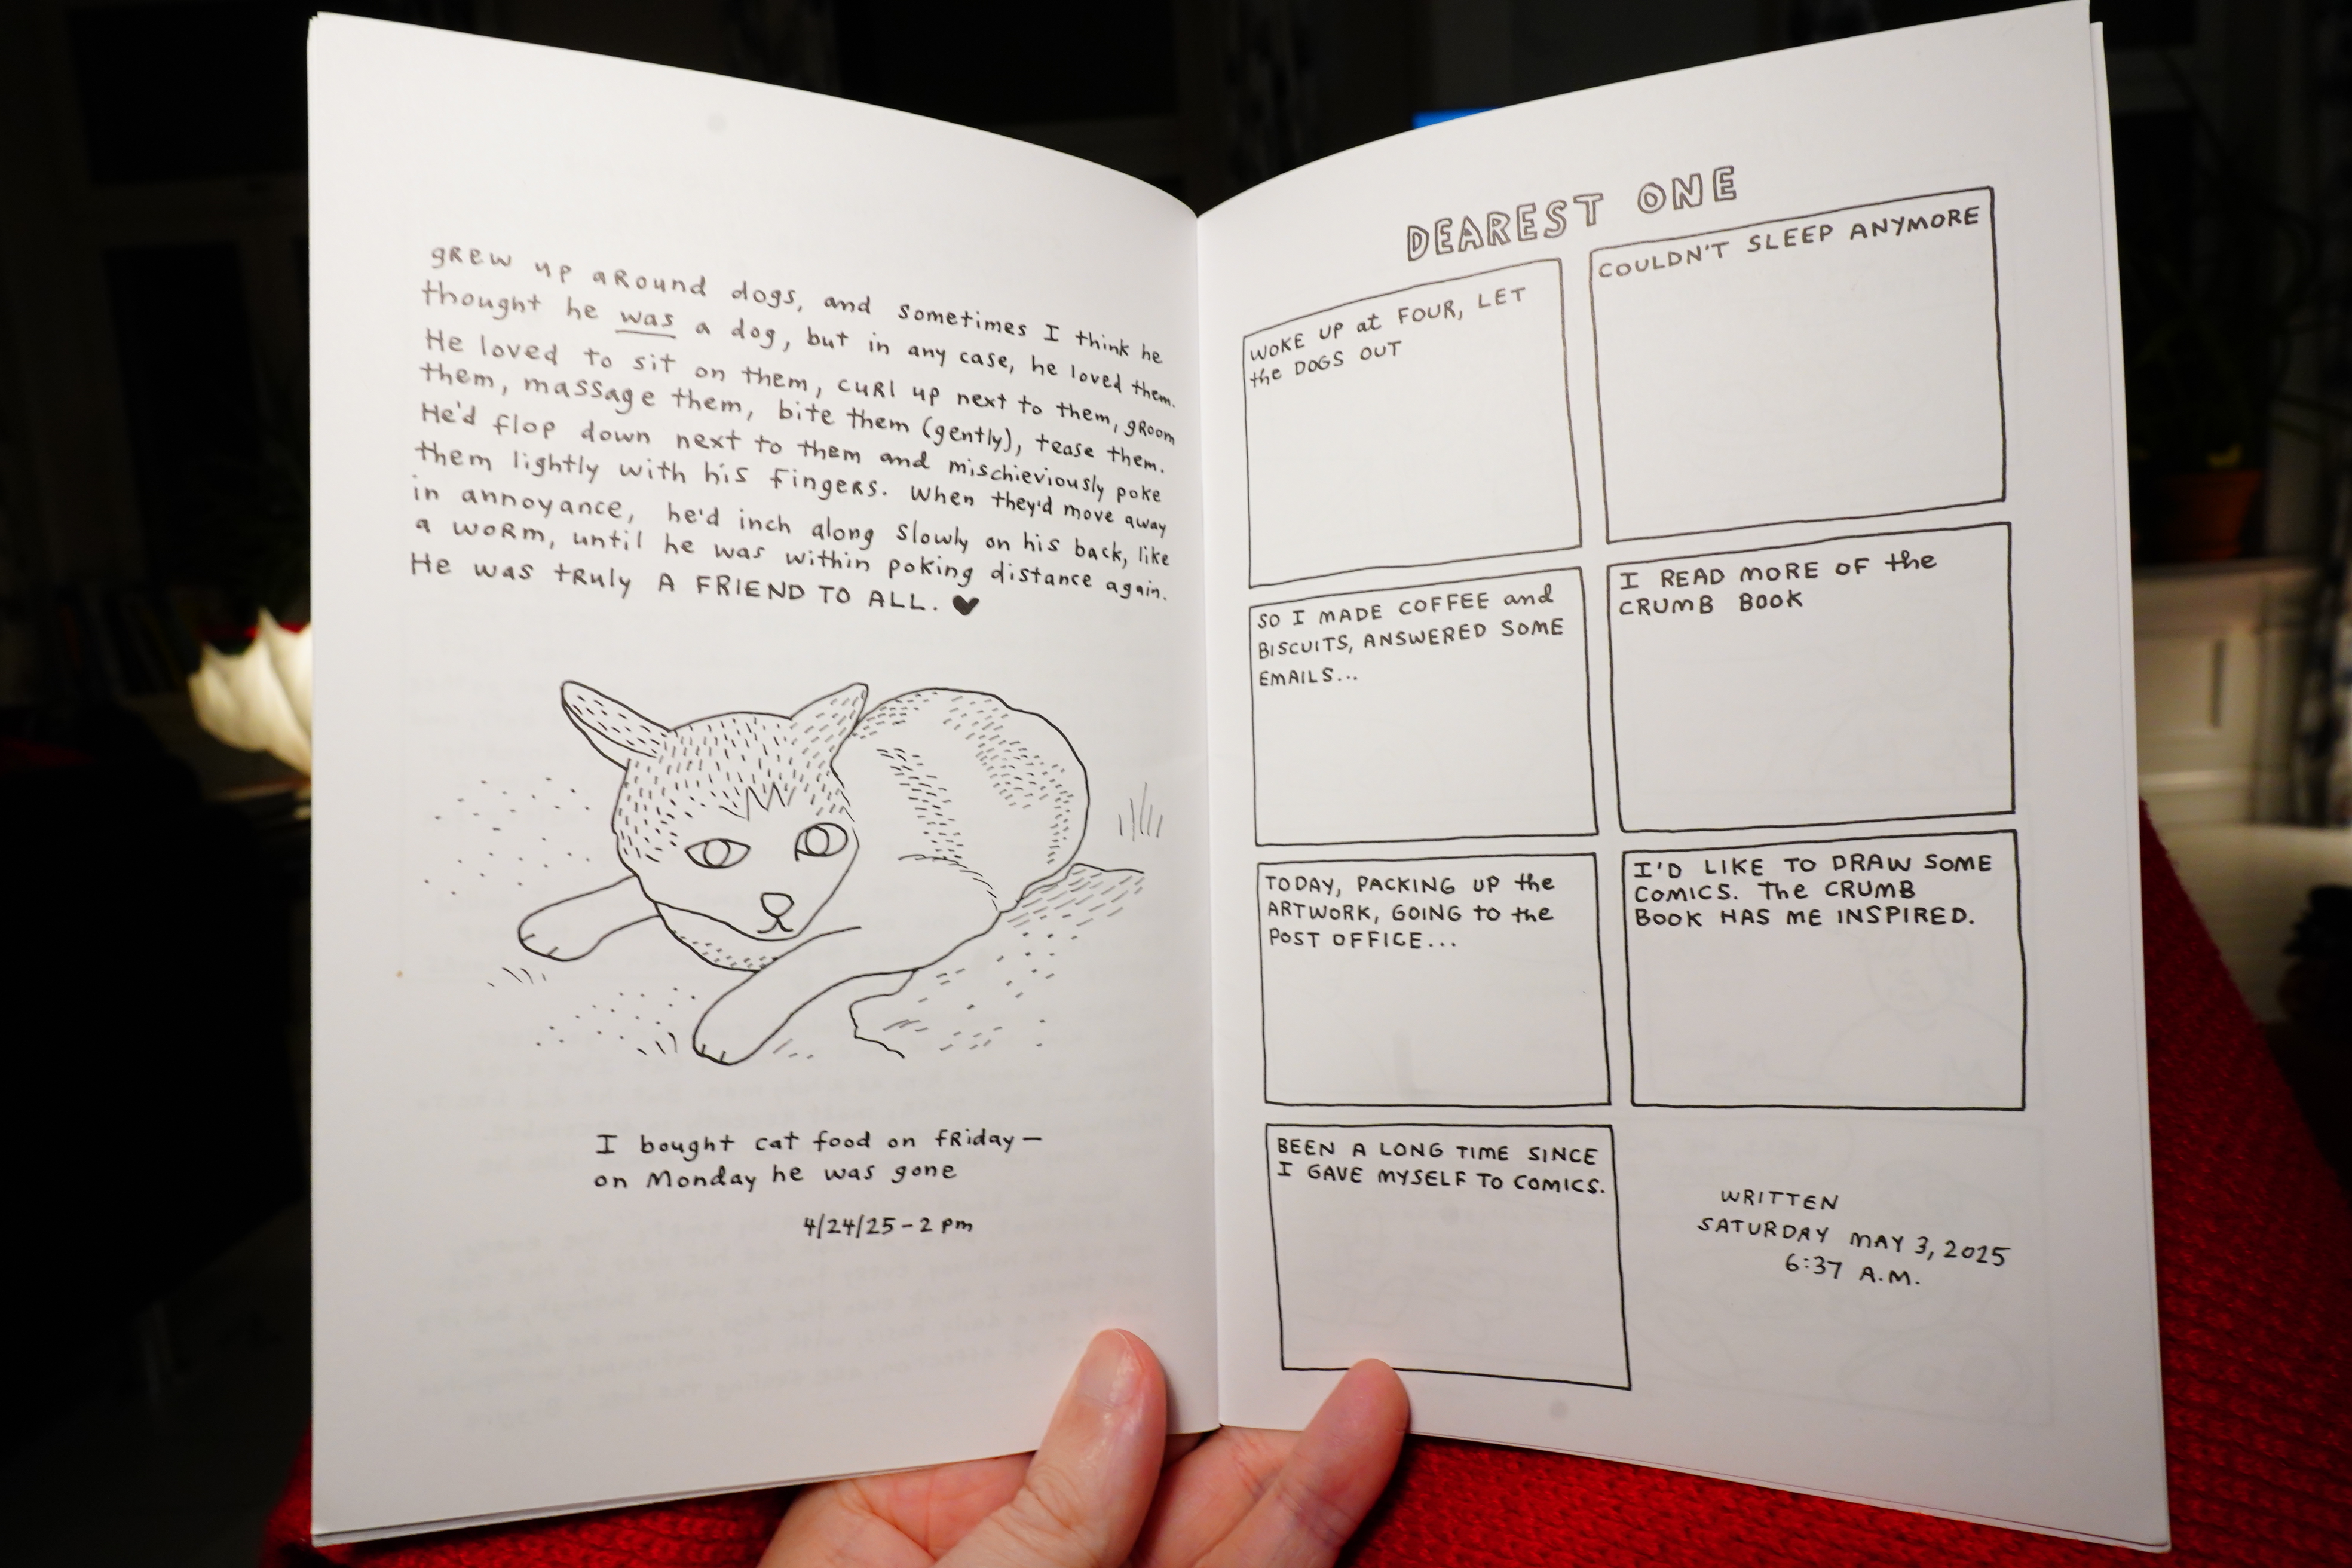 grew up around dogs, and sometimes I think he
thought he was a dog, but in any case, he loved them.
He loved to sit on them, curl up next to them, groom
them, massage them, bite them (gently), tease them.
He'd flop down next to them and mischieviously poke
them lightly with his fingers. When they'd move away
in annoyance, he'd inch along slowly on his back, like
a worm, until he was within poking distance again.
He was truly A FRIEND TO ALL. ♥
I bought cat food on friday —
on Monday he was gone
4/24/25 - 2 pm
DEAREST ONE
WOKE UP at FOUR, LET
the DOGS OUT
COULDN'T SLEEP ANYMORE
SO I MADE COFFEE and
BISCUITS, ANSWERED SOME
EMAILS...
I READ MORE OF the
CRUMB BOOK
TODAY, PACKING UP the
ARTWORK, GOING to the
POST OFFICE...
I'D LIKE TO DRAW SOME
COMICS. The CRUMB
BOOK HAS ME INSPIRED.
BEEN A LONG TIME SINCE
I GAVE MYSELF TO COMICS.
WRITTEN
SATURDAY MAY 3, 2025
6:37 A.M.